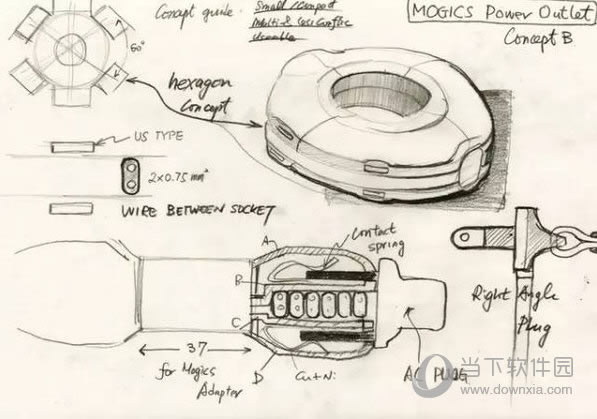 Concept guide.
Small/Compact
Multi &
MOGICS Power Outlet
Concept B
60°
hexagon
Concept
US TYPE
2×0.75 mm²
WIRE BETWEEN SOCKET
A
Contact
spring
B
C
D
37
for Mogics
Adapter
Cu+Ni
AC PLUG
Right Angle
Plug
当下软件园
www.downxia.com